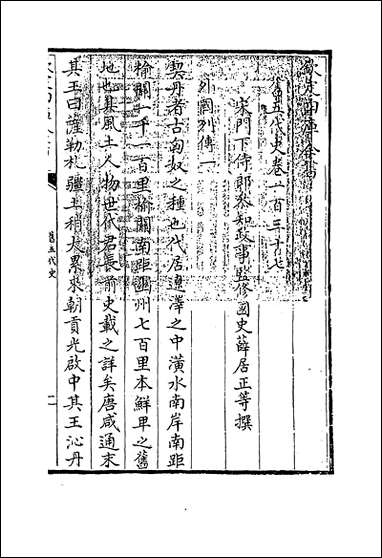 欽定四庫全書
舊五代史卷一百三十七
宋門下侍郎叅知政事監修國史薛居正等撰
外國列傳一
契丹者古匈奴之種也代居遼澤之中潢水南岸南距
榆關一千一百里榆關南距幽州七百里本鮮卑之舊
地也其風土人物世代君長前史載之詳矣唐咸通末
其王曰薩勒札疆土稍大累來朝貢光啟中其王沁丹
欽定四庫全書
舊五代史
一